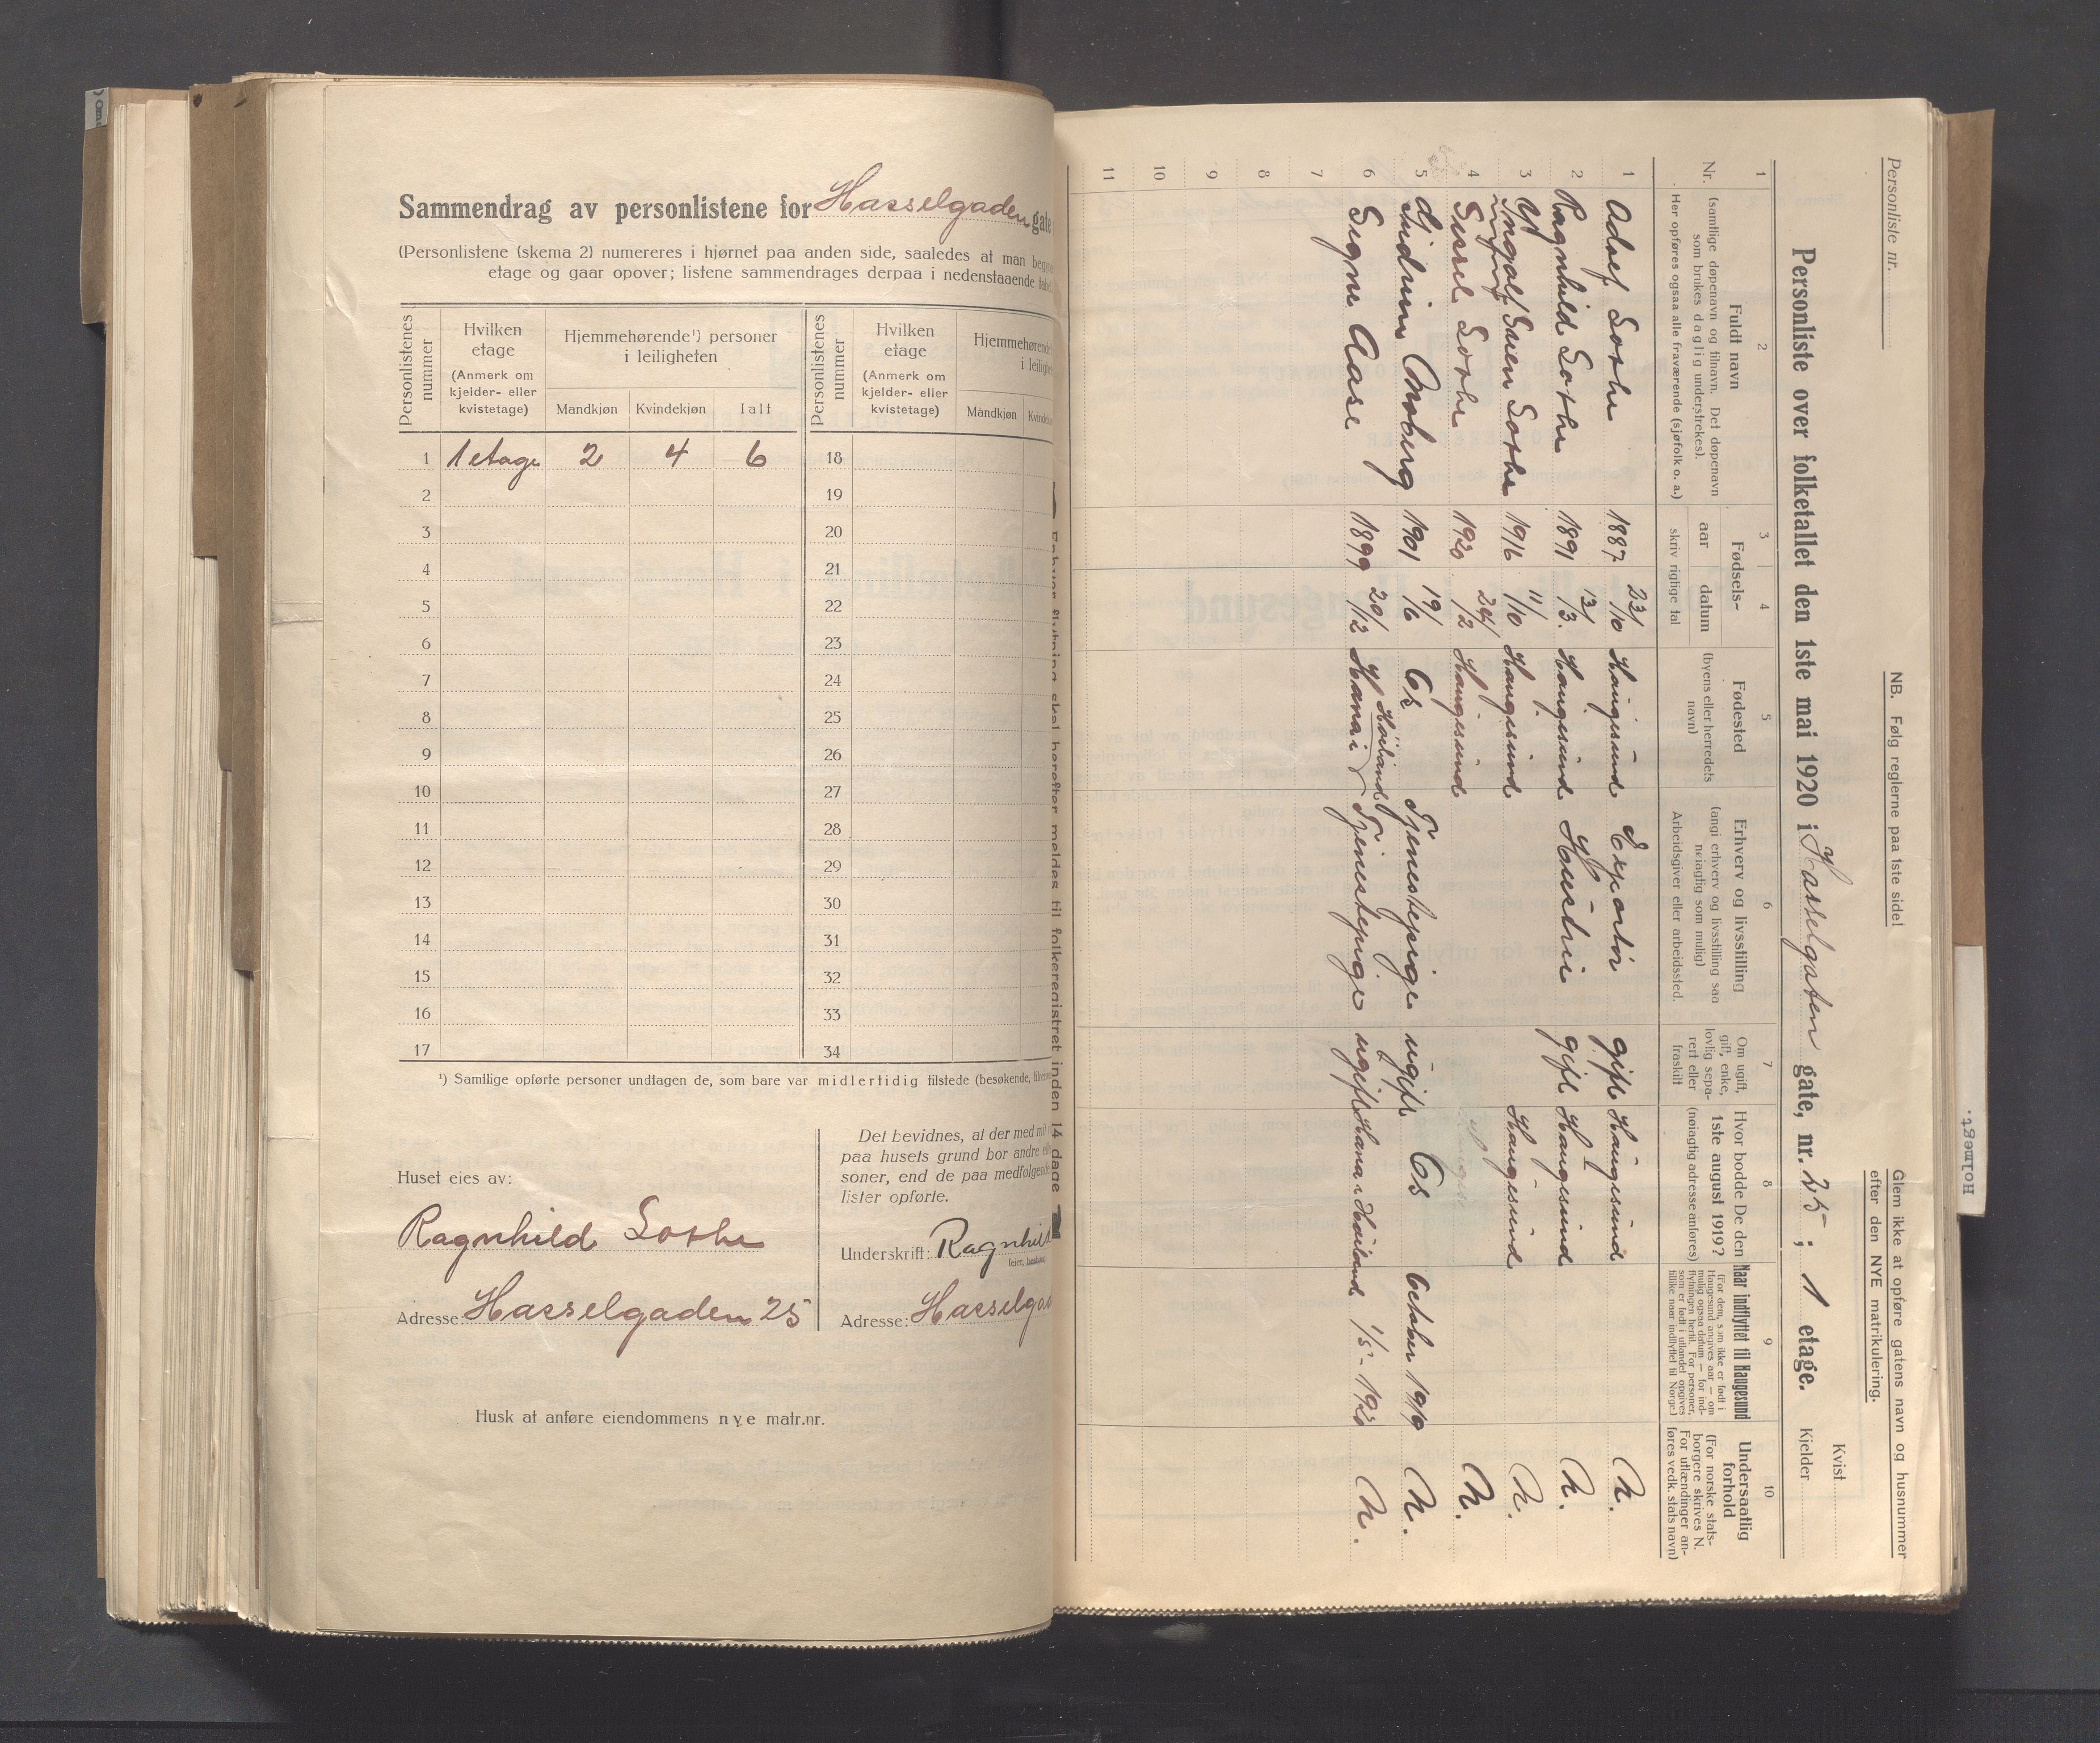 Sammendrag av personlistene for Hasselgaden gate
(Personlistene (skema 2) numereres i hjørnet paa anden side, saaledes at man
etage og gaar opover; listene sammendrages derpaa i nedenstaaende
Personlistenes nummer
Hvilken etage
(Anmerk om kjelder- eller kvistetage)
Hjemmehørende¹) personer i leiligheten
Mandkjøn Kvindekjøn Ialt
Personlistenes nummer
Hvilken etage
(Anmerk om kjelder- eller kvistetage)
Mandkjøn
1 1 etage 2 4 6 18
2 19
3 20
4 21
5 22
6 23
7 24
8 25
9 26
10 27
11 28
12 29
13 30
14 31
15 32
16 33
17 34
¹) Samtlige opførte personer undtagen de, som bare var midlertidig tilstede (besøkende,
Huset eies av:
Ragnhild Lothe
Adresse: Hasselgaden 25
Det bevidnes, at der med
paa husets grund bor andre
soner, end de paa medfølgende
lister opførte.
Underskrift: Ragnhild
Adresse: Hasselga
Husk at anføre eiendommens nye matr.nr.
skal herefter meldes til folkeregistret inden 14 dage
Personliste nr.
NB. Følg reglerne paa 1ste side!
Glem ikke at opføre gatens navn og husnummer
efter den NYE matrikulering.
Personliste over folketallet den 1ste mai 1920 i Hasselgaten gate, nr. 25; 1 etage.
Kvist
Kjelder
1 2 3 4 5 6 7 8 9 10
Nr.
Fuldt navn
(samtlige døpenavn og tilnavn. Det døpenavn
som brukes daglig understrekes).
Her opføres ogsaa alle fraværende (sjøfolk o. a.)
Fødsels-
aar datum
skriv rigtige tal
Fødested
(byens eller herredets
navn)
Erhverv og livsstilling
(angi erhverv og livsstilling saa
nøiagtig som mulig)
Arbeidsgiver eller arbeidssted.
Om ugift,
gift, enke,
lovlig sepa-
rert eller
fraskilt
Hvor bodde De den
1ste august 1919?
(nøiagtig adresse anføres)
Naar indflyttet til Haugesund
(For dem, som ikke er født i
Haugesund angives aar — om
mulig ogsaa datum — for ind-
flytningen hertil. For personer,
som er født i utlandet opgives
tillike naar indflyttet til Norge.)
Undersaatlig
forhold
(For norske stats-
borgere skrives N.
For utlændinger an-
føres vedk. stats navn)
1 Adolf Lothe 1887 23/10 Haugesund Exportør gift Haugesund N.
2 Ragnhild Lothe 1891 13/3. Haugesund Hustru gift Haugesund N.
3 Ingolf Lothe 1916 11/10 Haugesund Haugesund N.
4 Sissel Lothe 1920 24/2 Haugesund N.
5 Gudrun Moberg 1901 19/6 Os Tjenestepige ugift Os October 1919 N.
6 Signe Aase 1899 20/12 Hana i Høiland Tjenestepige ugift Hana i Høiland 1/5-1920 N.
7
8
9
10
11
Holmegt.